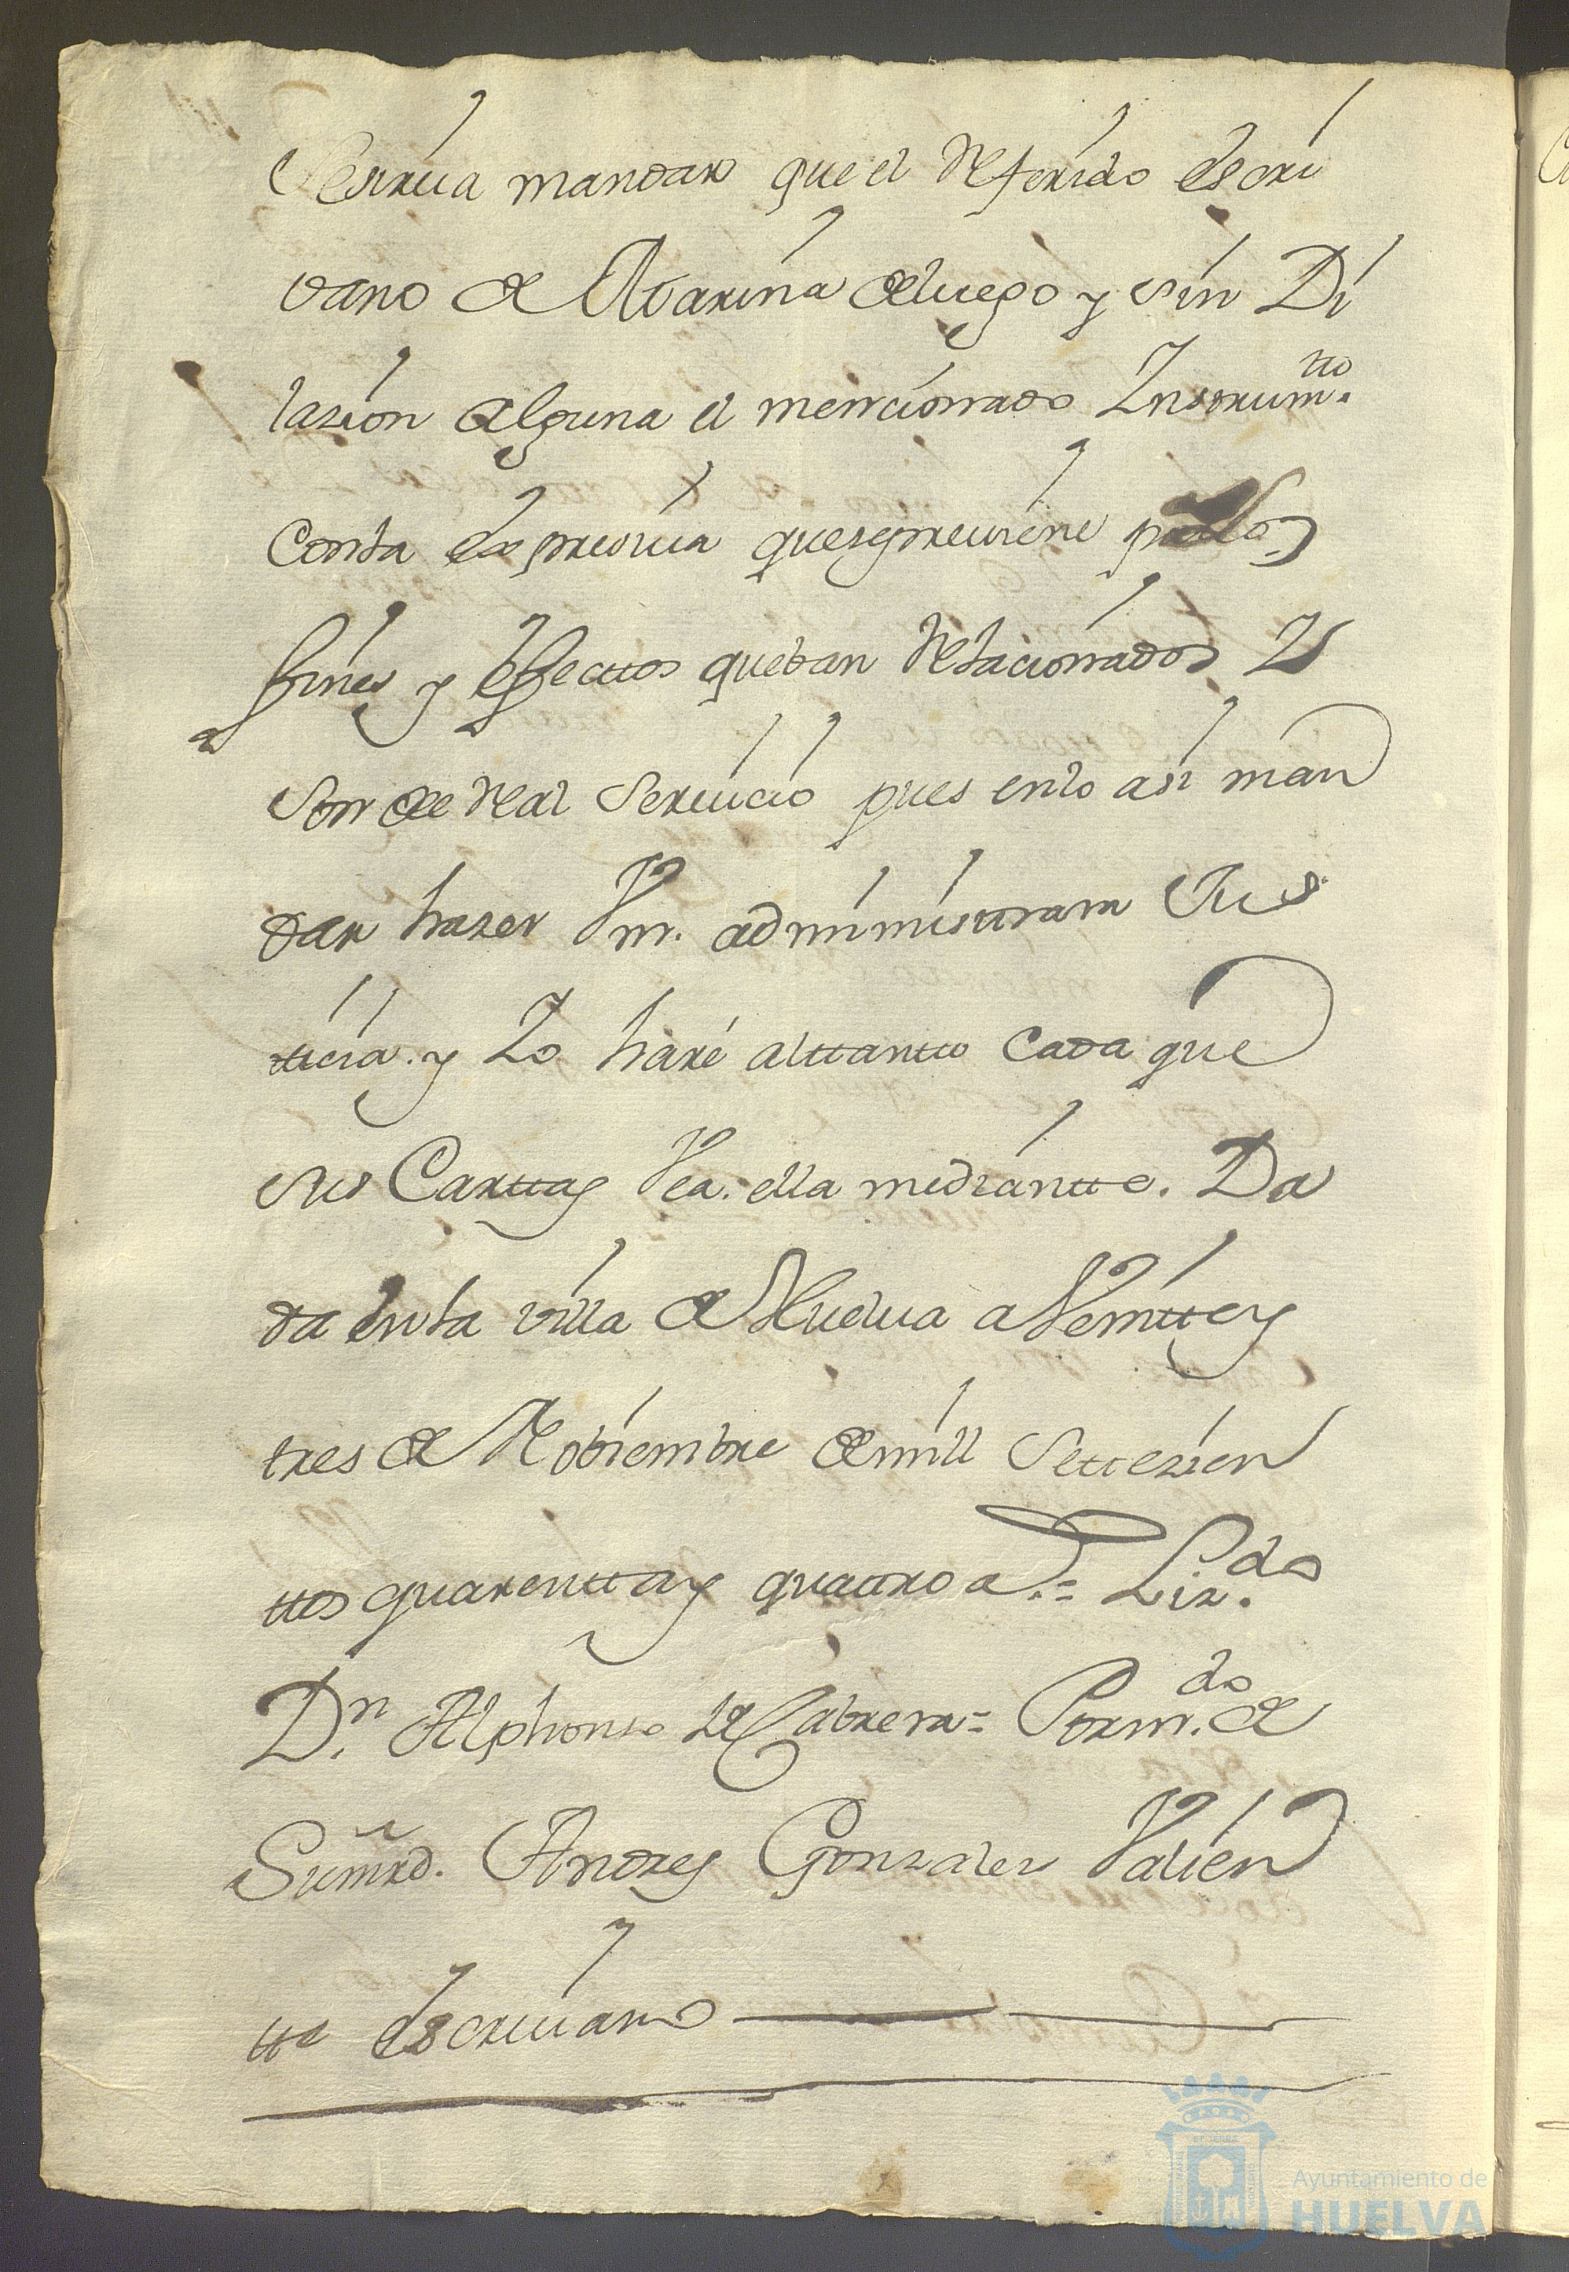 Se sirua mandar que el referido escri
vano de Marina de luego y sin Di
lazion alguna el mencionado Instrum.tto
con la expresiua que se preuiene para los
fines y effecttos que ban relacionados Y
son de real Seruicio pues en lo asi man
dar hazer Vm. administrara Jus
ticia. y Yo haré al ttantto cada que
sus Carttas Vea. ella mediantte. Da
da en la villa de Huelua a Veintte y
tres de Nobiembre de mill Settezien
ttos quarentta y quattro a.s = Liz.do
D.n Alphonso de Cabrera = Por m.do de
Su mrd. Andres Gonzales Valien
tte escriuano
Ayuntamiento de
HUELVA